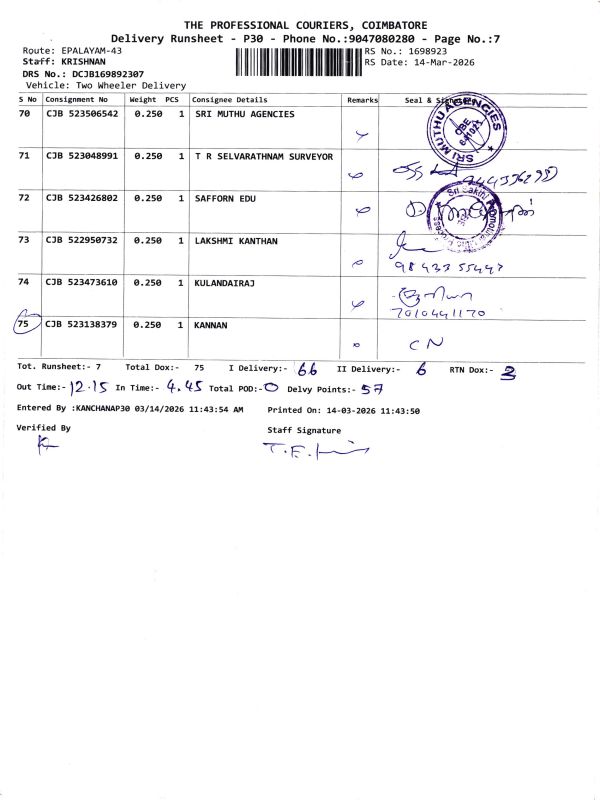 THE PROFESSIONAL COURIERS, COIMBATORE
Delivery Runsheet - P30 - Phone No.:9047080280 - Page No.:7
Route: EPALAYAM-43 RS No.: 1698923
Staff: KRISHNAN RS Date: 14-Mar-2026
DRS No.: DCJB169892307
Vehicle: Two Wheeler Delivery
S No Consignment No Weight PCS Consignee Details Remarks Seal & Signature
70 CJB 523506542 0.250 1 SRI MUTHU AGENCIES
SRI MUTHU AGENCIES CBE
71 CJB 523048991 0.250 1 T R SELVARATHNAM SURVEYOR
72 CJB 523426802 0.250 1 SAFFORN EDU
Sri Sakthi
73 CJB 522950732 0.250 1 LAKSHMI KANTHAN
98433 55447
74 CJB 523473610 0.250 1 KULANDAIRAJ
7010441170
75 CJB 523138379 0.250 1 KANNAN
CN
Tot. Runsheet:- 7 Total Dox:- 75 I Delivery:- 66 II Delivery:- 6 RTN Dox:- 3
Out Time:- 12.15 In Time:- 4.45 Total POD:- 0 Delvy Points:- 57
Entered By :KANCHANAP30 03/14/2026 11:43:54 AM Printed On: 14-03-2026 11:43:50
Verified By Staff Signature